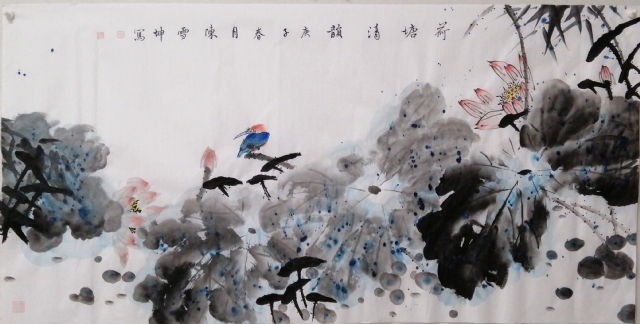 荷塘清韻庚子春月陳雪坤寫